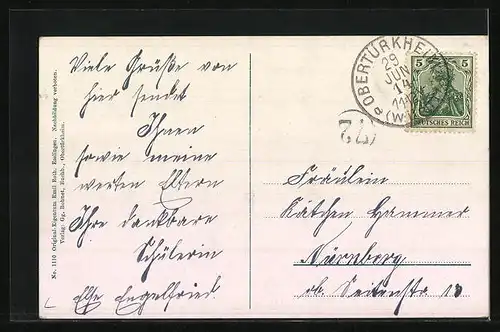 Viele Grüße von
hier sendet
Ihnen
sowie meine
werten Eltern
Ihre dankbare
Schülerin
Else Engelfried.
No. 1110 Original-Eigentum Emil Roth, Esslingen. Nachbildung verboten.
Verlag: Gg. Bohnet, Buchh., Obertürkheim.
OBERTÜRKHEIM
29
JUN
14
5 5
DEUTSCHES REICH
Fräulein
Kätchen Hammer
Nürnberg
ob. Seitenstr 13